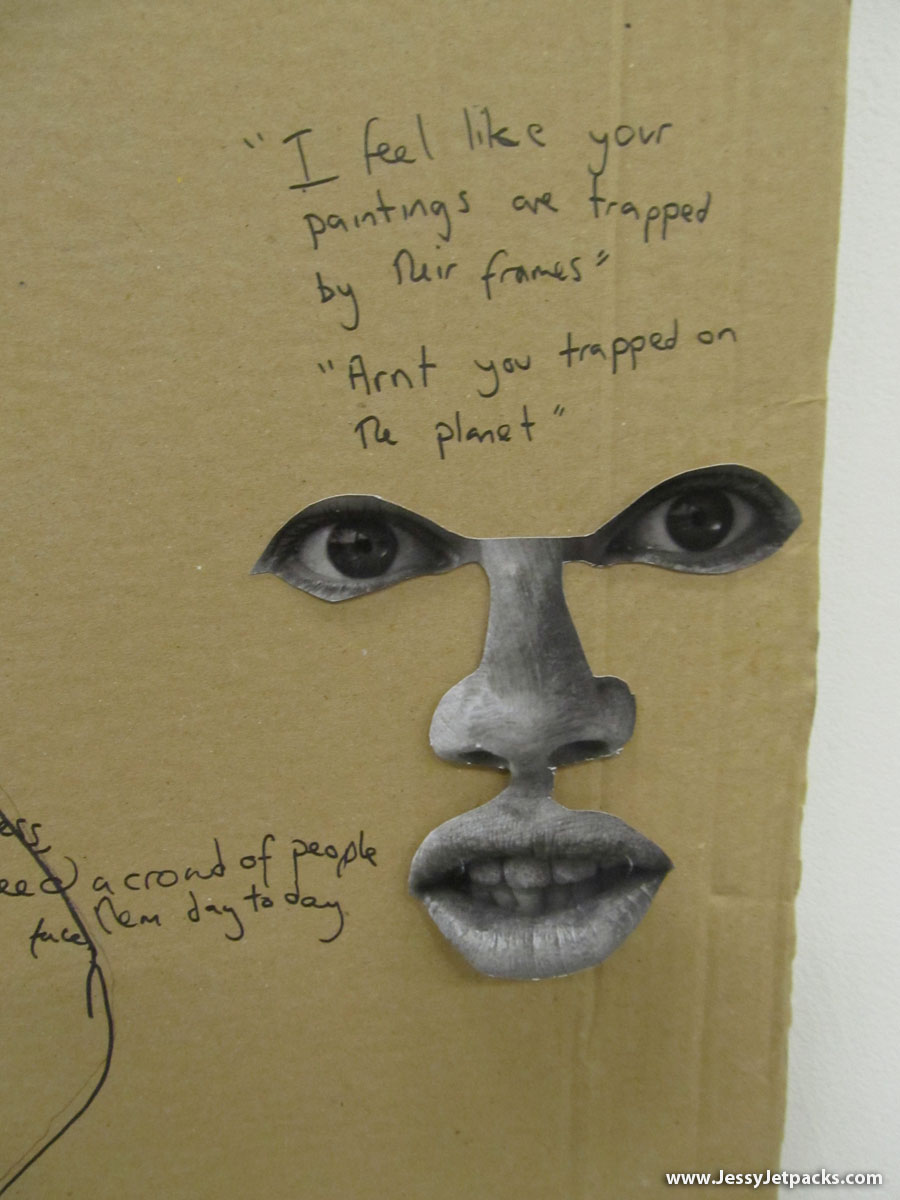 "I feel like your
paintings are trapped
by their frames"
"Arnt you trapped on
the planet"
a crowd of people
face them day to day.
www.JessyJetpacks.com